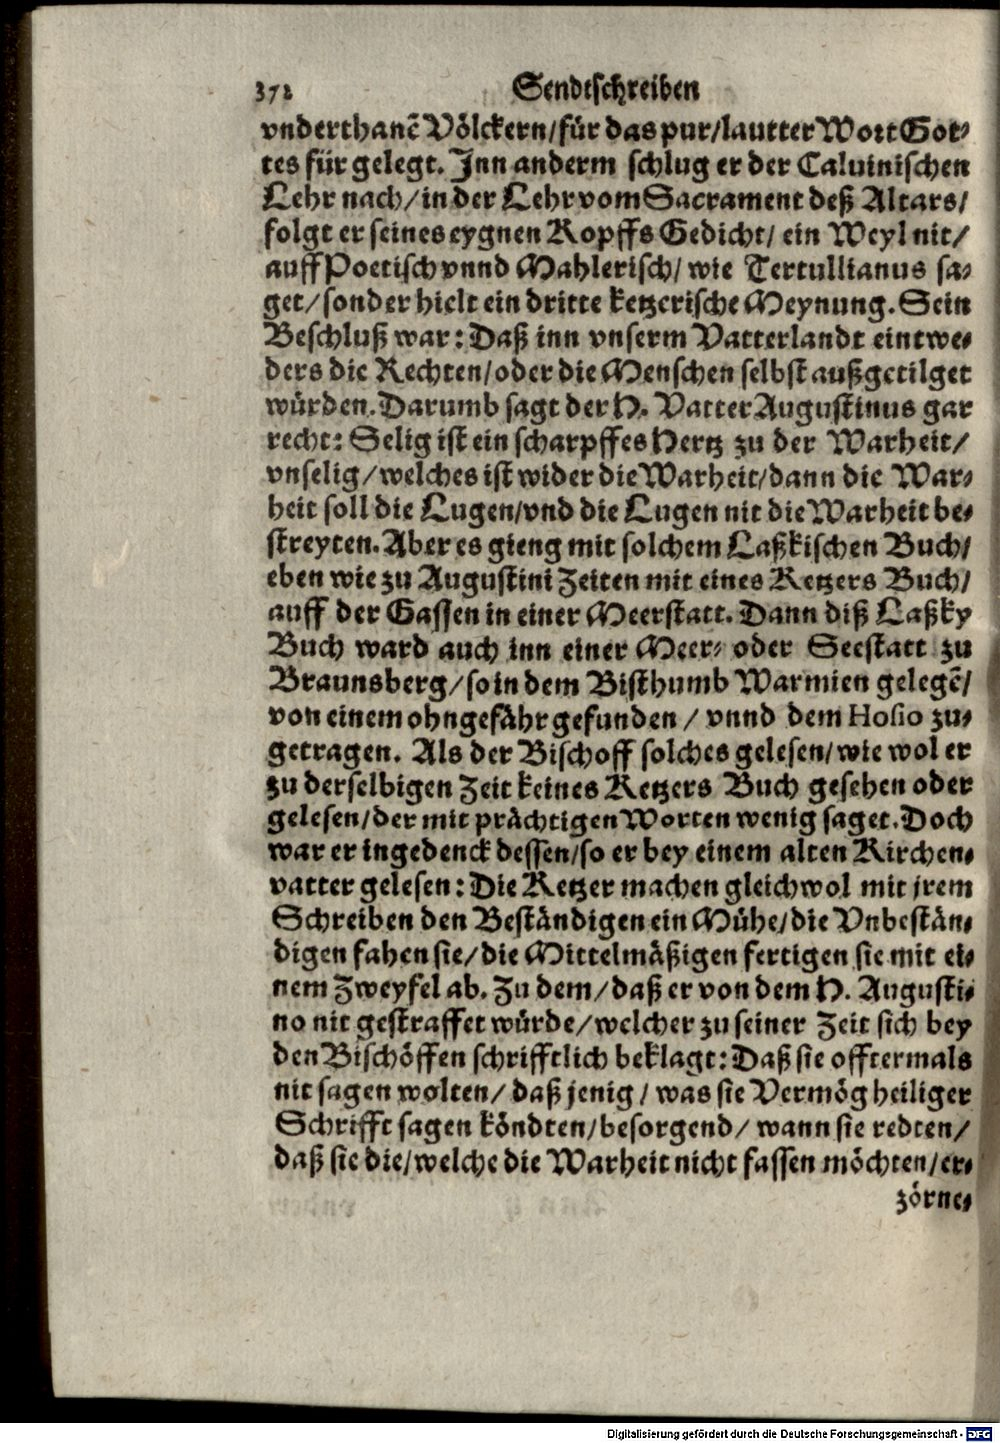 372 Sendtschreiben
vnderthanē Völckern/für das pur/lautter Wort Got⸗
tes für gelegt. Inn anderm schlug er der Caluinischen
Lehr nach/in der Lehr vom Sacrament deß Altars/
folgt er seines eygnen Kopffs Gedicht/ ein Weyl nit/
auff Poetisch vnnd Mahlerisch/ wie Tertullianus sa⸗
get/sonder hielt ein dritte ketzerische Meynung. Sein
Beschluß war: Daß inn vnserm Vatterlandt eintwe⸗
ders die Rechten/oder die Menschen selbst außgetilget
würden. Darumb sagt der H. Vatter Augustinus gar
recht: Selig ist ein scharpffes Hertz zu der Warheit/
vnselig/welches ist wider die Warheit/dann die War⸗
heit soll die Lugen/vnd die Lugen nit die Warheit be⸗
streyten. Aber es gieng mit solchem Laßkischen Buch/
eben wie zu Augustini Zeiten mit eines Ketzers Buch/
auff der Gassen in einer Meerstatt. Dann diß Laßky
Buch ward auch inn einer Meer⸗ oder Seestatt zu
Braunsberg/so in dem Bisthumb Warmien gelegē/
von einem ohngefähr gefunden/ vnnd dem Hosio zu⸗
getragen. Als der Bischoff solches gelesen/wie wol er
zu derselbigen Zeit keines Ketzers Buch gesehen oder
gelesen/der mit prächtigen Worten wenig saget. Doch
war er ingedenck dessen/so er bey einem alten Kirchen⸗
vatter gelesen: Die Ketzer machen gleichwol mit jrem
Schreiben den Beständigen ein Mühe/die Vnbestän⸗
digen fahen sie/die Mittelmäßigen fertigen sie mit ei⸗
nem Zweyfel ab. Zu dem/daß er von dem H. Augusti⸗
no nit gestraffet würde/welcher zu seiner Zeit sich bey
den Bischöffen schrifftlich beklagt: Daß sie offtermals
nit sagen wolten/ daß jenig/ was sie Vermög heiliger
Schrifft sagen köndten/besorgend/ wann sie redten/
daß sie die/welche die Warheit nicht fassen möchten/er⸗
zörne⸗
Digitalisierung gefördert durch die Deutsche Forschungsgemeinschaft - DFG